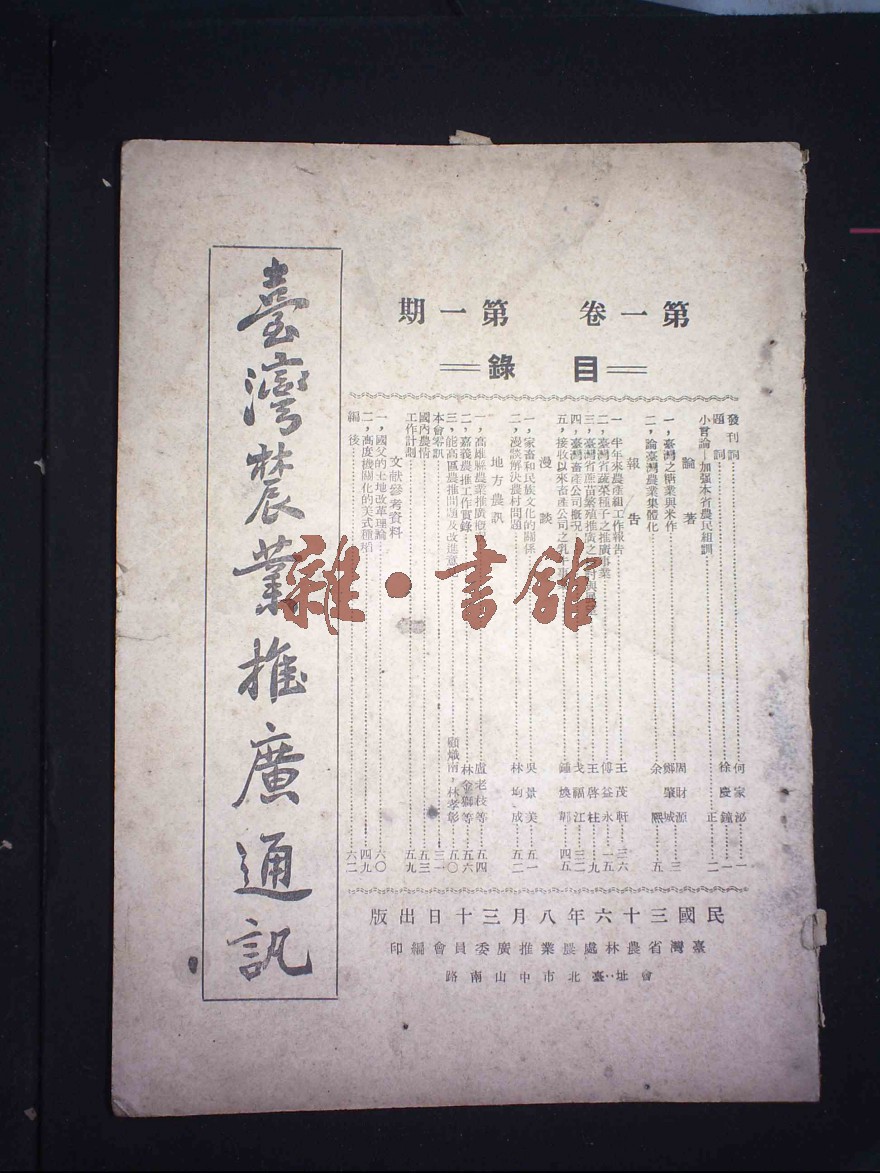 臺灣農業推廣通訊
第一卷 第一期
目錄
發刊詞 何家泌 一
題詞 徐慶鐘 一
小言論—加强本省農民組訓 正 二
論著
一，臺灣之糖業與米作 周財源 鄭肇城 三
二，論臺灣農業集體化 余熙 五
報告
一 半年來農產組工作報告 王茂軒 三六
二，臺灣省蔬菜種子之推廣事業 傅益永 一五
三，臺灣省蔗苗繁殖推廣之 王啓柱 九
四，臺灣畜產公司概況 戈福江 三二
五，接收以來畜產公司之乳牛事 鍾煥 四五
漫談
一，家畜和民族文化的關係 吳景美 五一
二，漫談解決農村問題 林均成 五二
地方農訊
一，高雄縣農業推廣概 盧老枝等 五四
二，嘉義農推工作實錄 林金獅等 五六
三，能高區農推問題及改進意 顧熾南，林孝彰 五〇
本會零訊 三一
國內農情 五三
工作計劃 五九
文獻參考資料
一，國父的土地改革理論 六〇
二，高度機關化的美式種稻 四九
編後 六二
民國三十六年八月三十日出版
臺灣省農林處農業推廣委員會編印
會址：臺北市中山南路
雜·書館